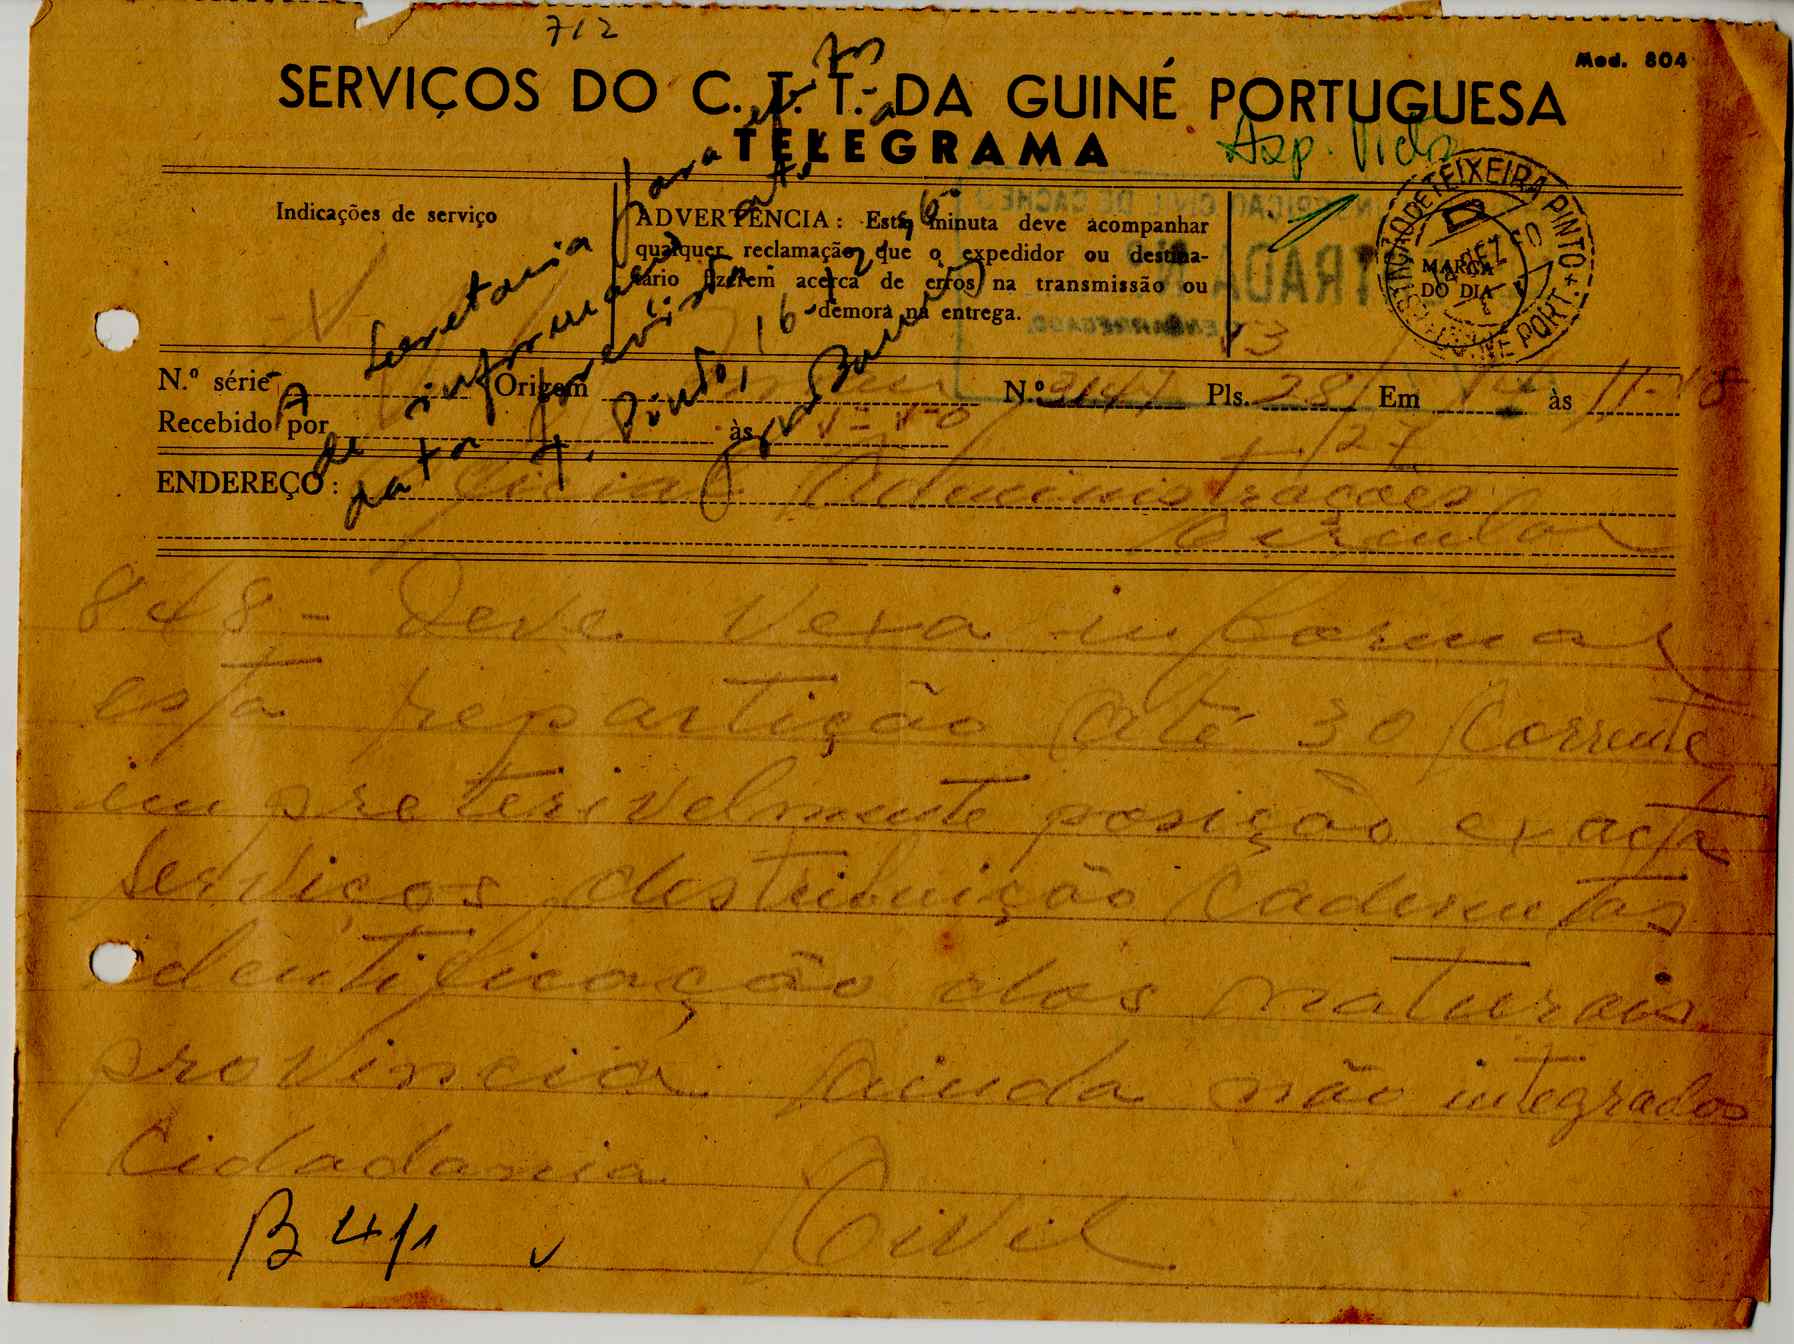 712
Mod. 804
SERVIÇOS DO C. T. T. DA GUINÉ PORTUGUESA
TELEGRAMA
Asp. Vida
Indicações de serviço
ADVERTÊNCIA: Esta minuta deve acompanhar
qualquer reclamação que o expedidor ou destina-
tário fizerem acerca de erros na transmissão ou
demora na entrega.
ESTAÇÃO DE TEIXEIRA PINTO
MARCA
DO DIA
GUINÉ PORT.
À Secretaria para
de informação
T. Pinto, 16
N.º série Origem N.º 3147 Pls. 28/27 Em 14 às 11-48
Recebido por às
ENDEREÇO: Administrações
Circular
848 - Deve Vexa informar
esta repartição até 30 corrente
impreterivelmente posição exacta
serviços destribuição cadernetas
identificação dos naturais
provincia ainda não integrados
cidadania Civil
B 4/1